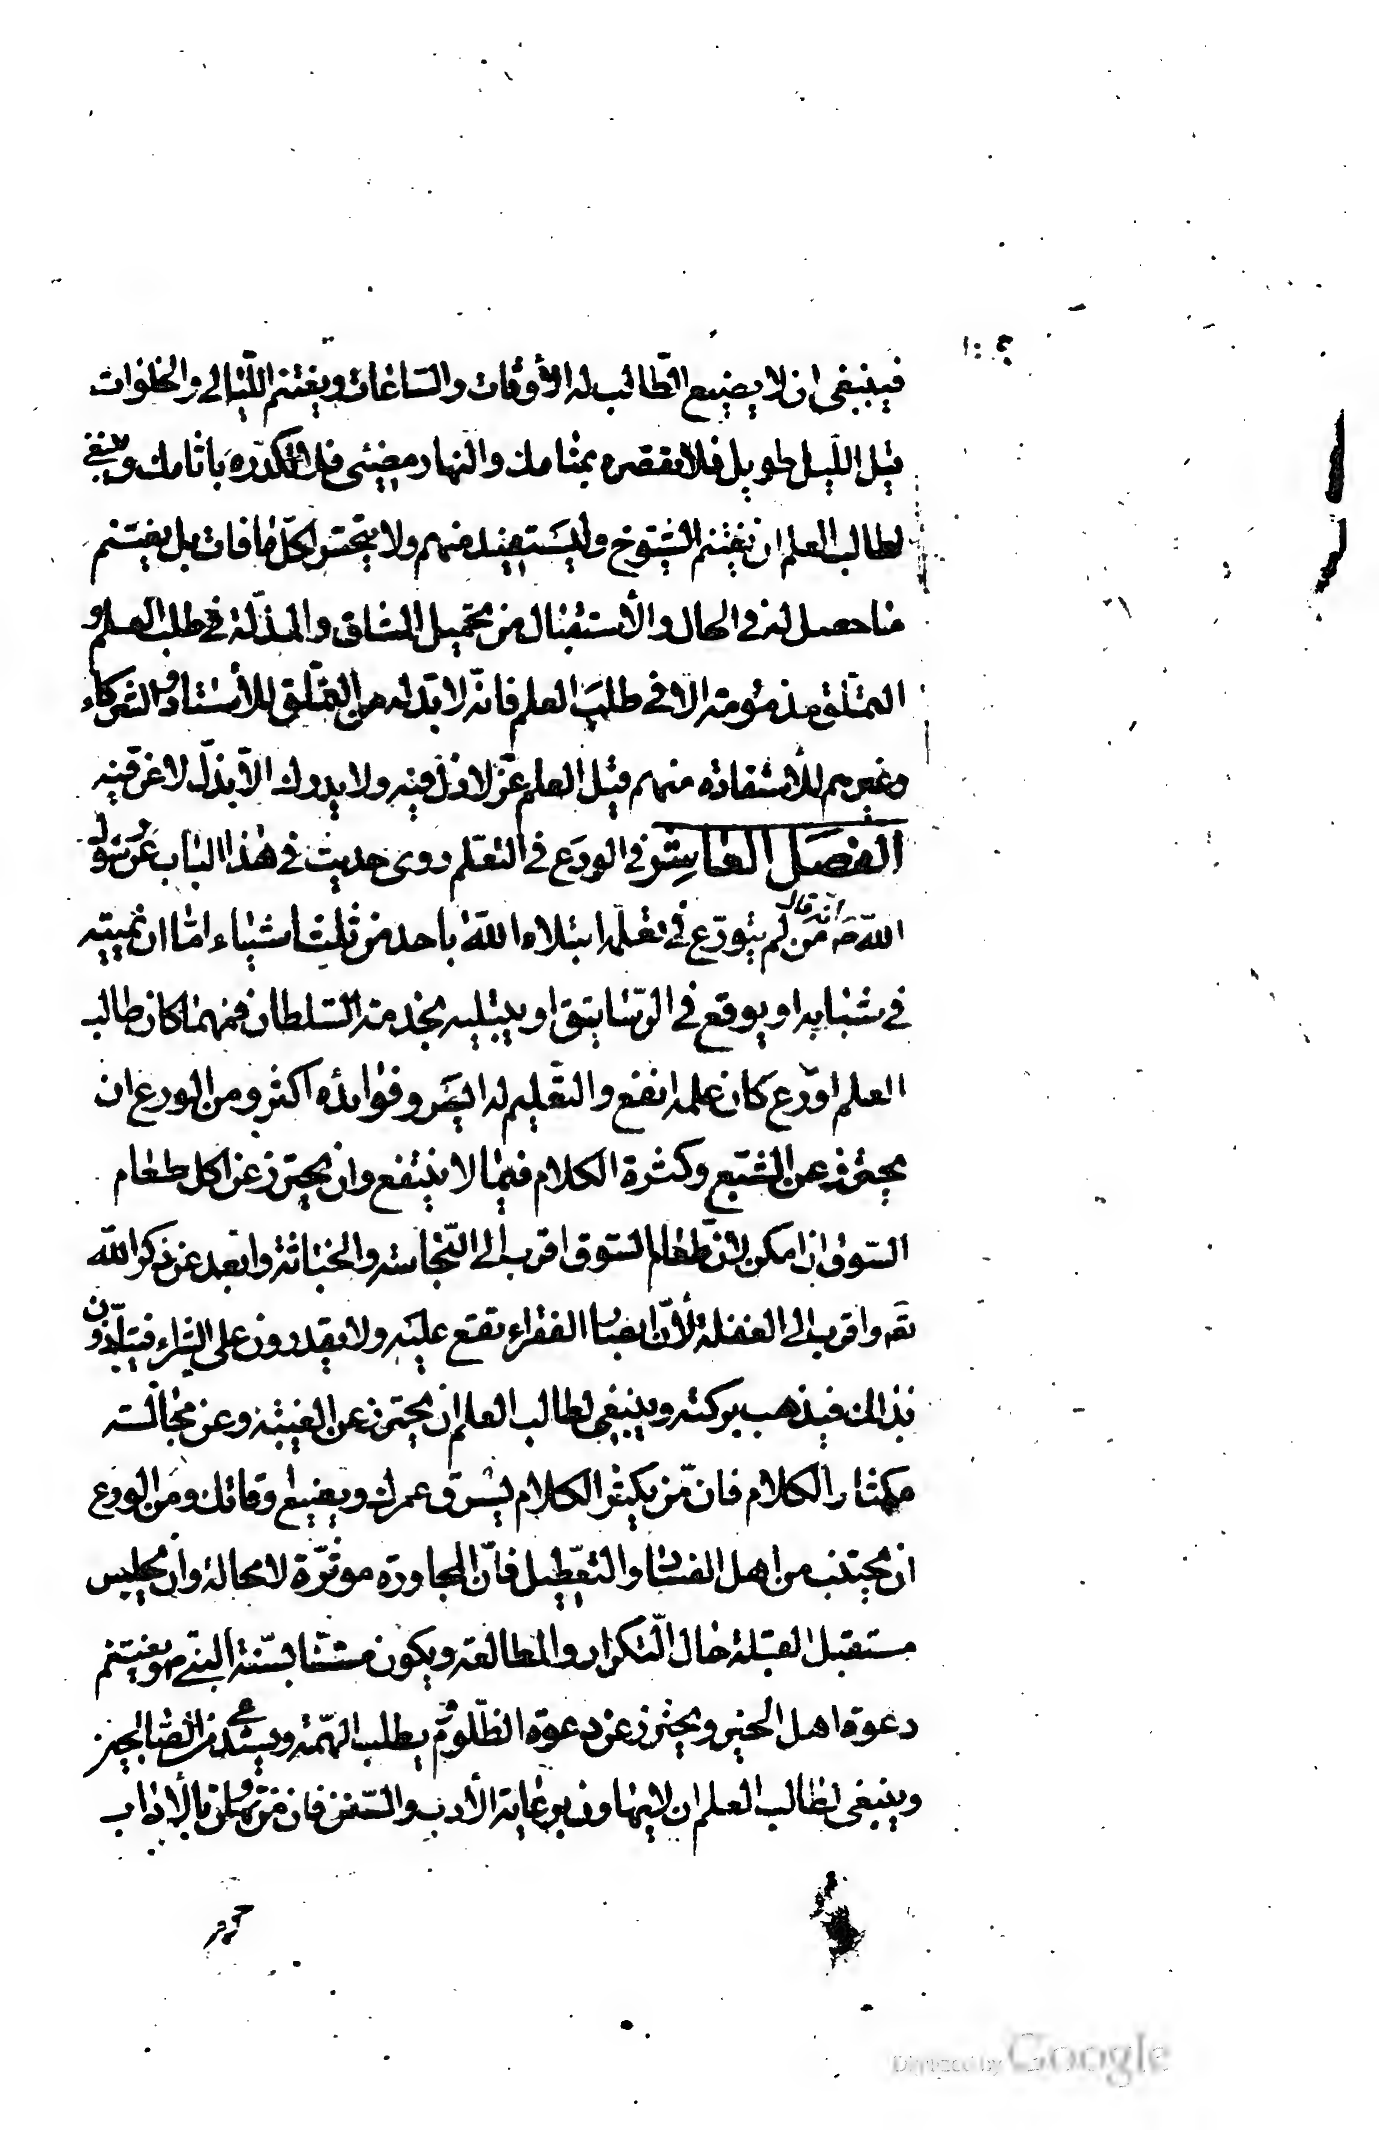 فينبغى ان لا يضيع الطّالب له الأوقات والسّاعات ويغتنم اللّيالى والخلوات
قيل اللّيل طويل فلا تقصره بمنامك والنهار مضيئى فلا تكدّره بآثامك وينبغى
لطالب العلم ان يغتنم الشيّوخ وليستفيد منهم ولا يتحسّر لكلّ ما فات بل يغتنم
ما حصل له فى الحال والأستقبال من تحميل المشاق والمذلّة فى طلب العلم و
التملّق مذمومة الّا فى طلب العلم فانّه لا بدّ له من التملّق للأستاد والشركاء
وغيرهم للأستفاده منهم قيل العلم عزّ لا ذلّ فيه ولا يدرك الّا بذلّ لا عزّ فيه
الفصل العاشر فى الورع فى التعّلم روى حديث فى هذا الباب عن رسول
اللّه ص انّه قال من لم يتورّع فى تعلّمه ابتلاه اللّه باحد من ثلث اشياء امّا ان يميته
فى شبابه او يوقع فى الرّساتيق او يبتليه بخدمة السّلطان فمهما كان طالب
العلم اورع كان علمه انفع والتعّليم له ايسر وفوائده اكثر ومن الورع ان
يحترز عن الشبع وكثرة الكلام فيما لا ينتفع وان يحترز عن اكل طعام
السّوق ان امكن لانّ طعام السّوق اقرب الى النّجاسة والخباثة وابعد عن ذكر اللّه
تعه واقرب الى الغفلة لأنّ ابصار الفقراء تقع عليه ولا يقدرون على الشراء فيتأذّون
بذالك فيذهب بركته وينبغى لطالب العلم ان يحترز عن الغيبة وعن مجالسة
مكثار الكلام فانّ من يكثر الكلام يسرق عمرك ويضيع اوقاتك ومن الورع
ان يجتنب من اهل الفساد والتعّطيل فانّ المجاورة موثرّة لا محالة وان يجلس
مستقبل القبلة حال التّكرار والمطالعة ويكون مستنّا بسّنة النبّى ص ويغتنم
دعوة اهل الخير ويحترز عن دعوة المظّلوم يطلب الهمّة ويستدعى من الصّالحين
وينبغى لطالب العلم ان لا يتهاون برعاية الأدب والسّنن فان من تهاون بالأداب